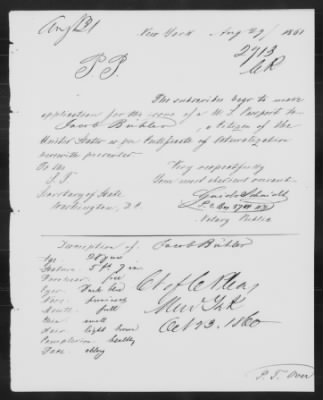 Aug 31
New York Aug 29/ 1861
2713
CR
P.P.
The subscriber begs to make
application for the issue of a U.S. Passport to
Jacob Bühler, a Citizen of the
United States as per Certificate of Naturalization
herewith presented
Very respectfully
To the
Your most obedient servant
Secretary of State
Washington, D.C.
Notary Public
Description of Jacob Bühler
Age 28 years
Stature 5 ft 7 in
Forehead free
Eyes Dark blue
Nose
Mouth full
Chin small
Hair light brown
Complexion healthy
Face oblong
Ct of C Pleas
New York
Oct 23. 1860
P.T. Over